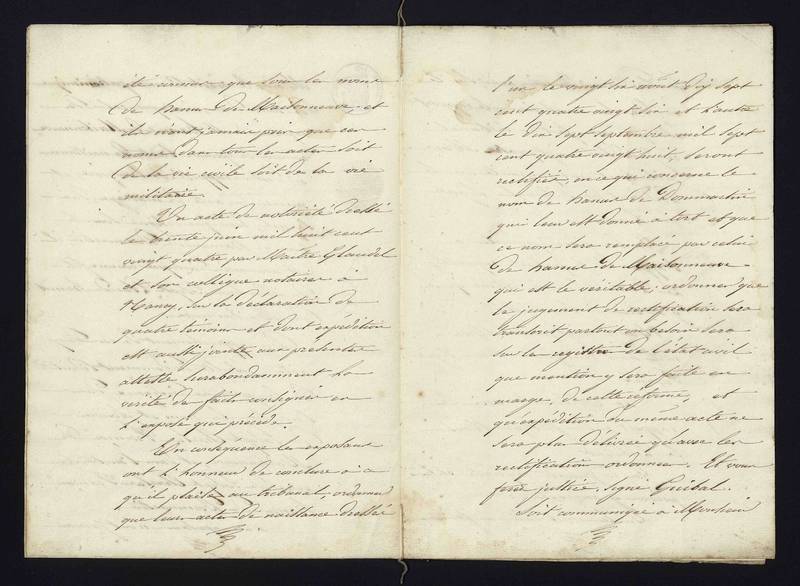 été connus que sous les noms
de hanus de Maisonneuve, et
ils n'ont jamais pris que ces
noms dans tous les actes soit
de la vie civile soit de la vie
militaire.
Un acte de notoriété dressé
le trente juin mil huit cent
vingt quatre par Maitre Glaudel
et son collègue notaires à
Nancy, sur la déclaration de
quatre témoins et dont expédition
est aussi jointe aux présentes
atteste surabondamment la
vérité des faits consignés en
l'exposé qui précède.
En conséquence les exposans
ont l'honneur de conclure à ce
qu'il plaise au tribunal, ordonner
que leurs actes de naissance dressés
l'un le vingt six août dix sept
cent quatre vingt six et l'autre
le dix sept septembre mil sept
cent quatre vingt huit, seront
rectifiés, en ce qui concerne le
nom de hanus de Dommartin
qui leur est donné à tort et que
ce nom sera remplacé par celui
de hanus de Maisonneuve
qui est le véritable, ordonner que
le jugement de rectification sera
transcrit partout où besoin sera
sur les registres de l'état civil
que mention y sera faite en
marge, de cette réforme, et
qu'expédition du même acte ne
sera plus délivrée qu'avec les
rectifications ordonnées. Et vous
ferez justice, signé Guibal.
Soit communiqué à Monsieur